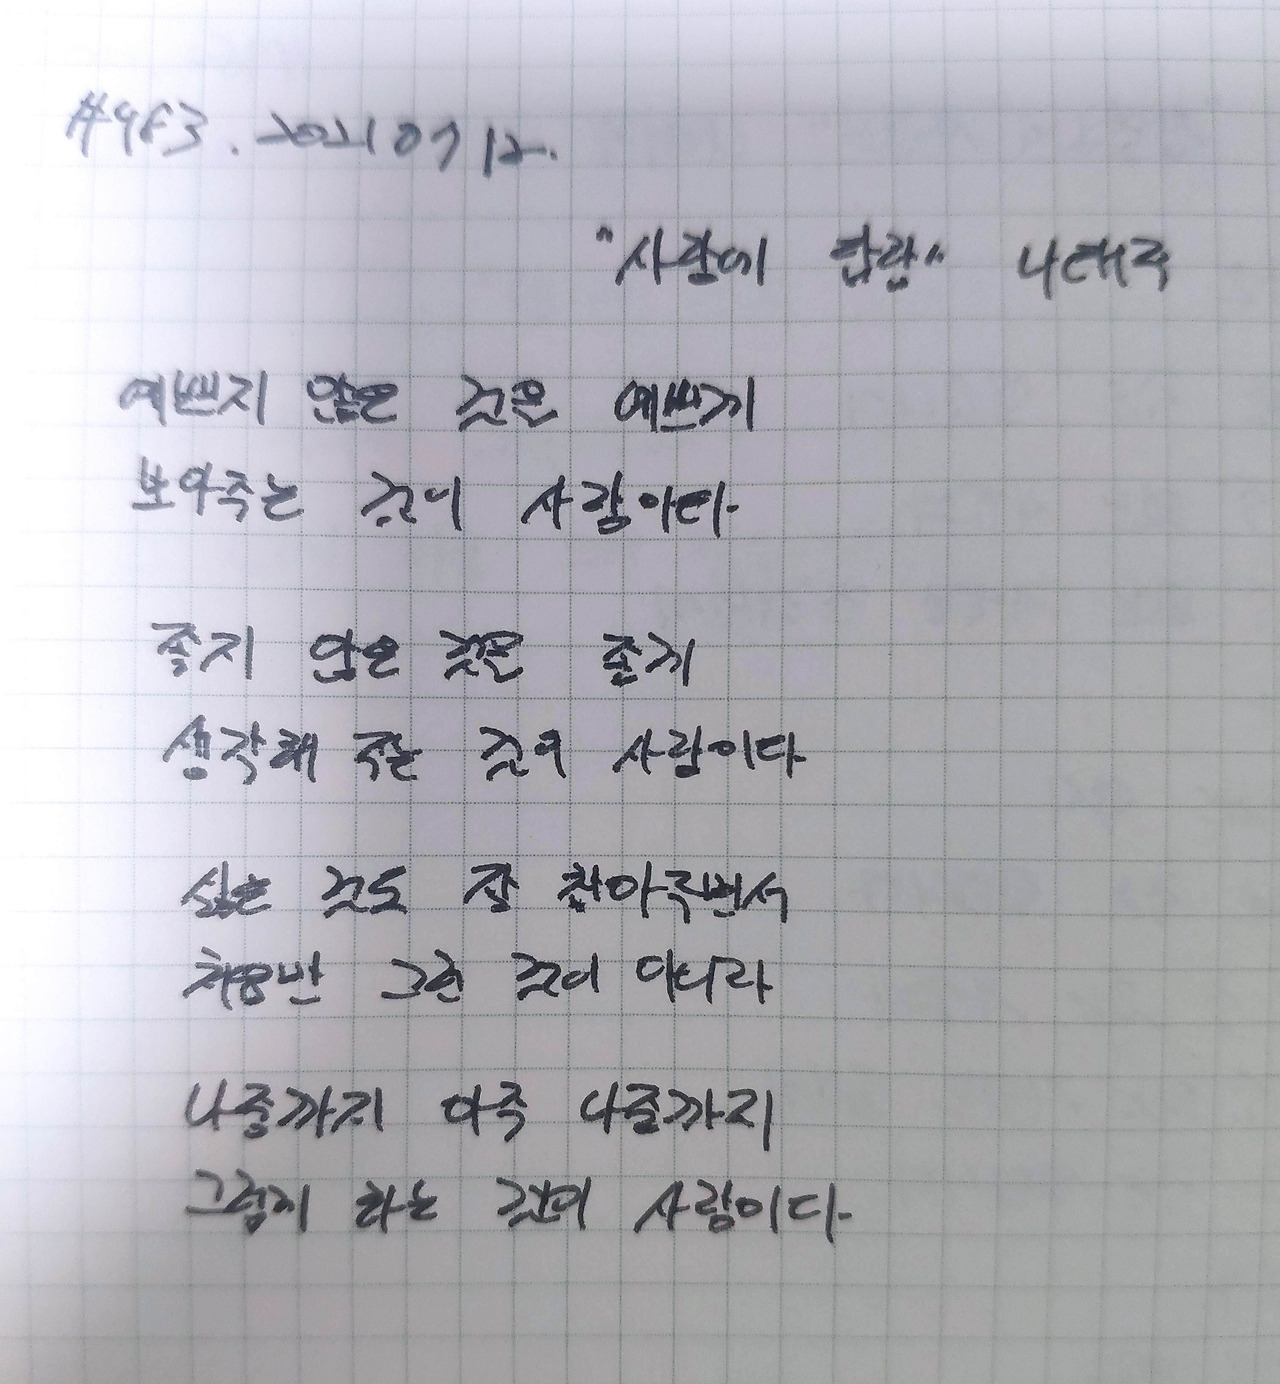 #983. 20210712.
"사랑에 답함" 나태주
예쁘지 않은 것은 예쁘게
보아주는 것이 사랑이다
좋지 않은 것을 좋게
생각해 주는 것이 사랑이다
싫은 것도 잘 참아주면서
처음만 그런 것이 아니라
나중까지 아주 나중까지
그렇게 하는 것이 사랑이다